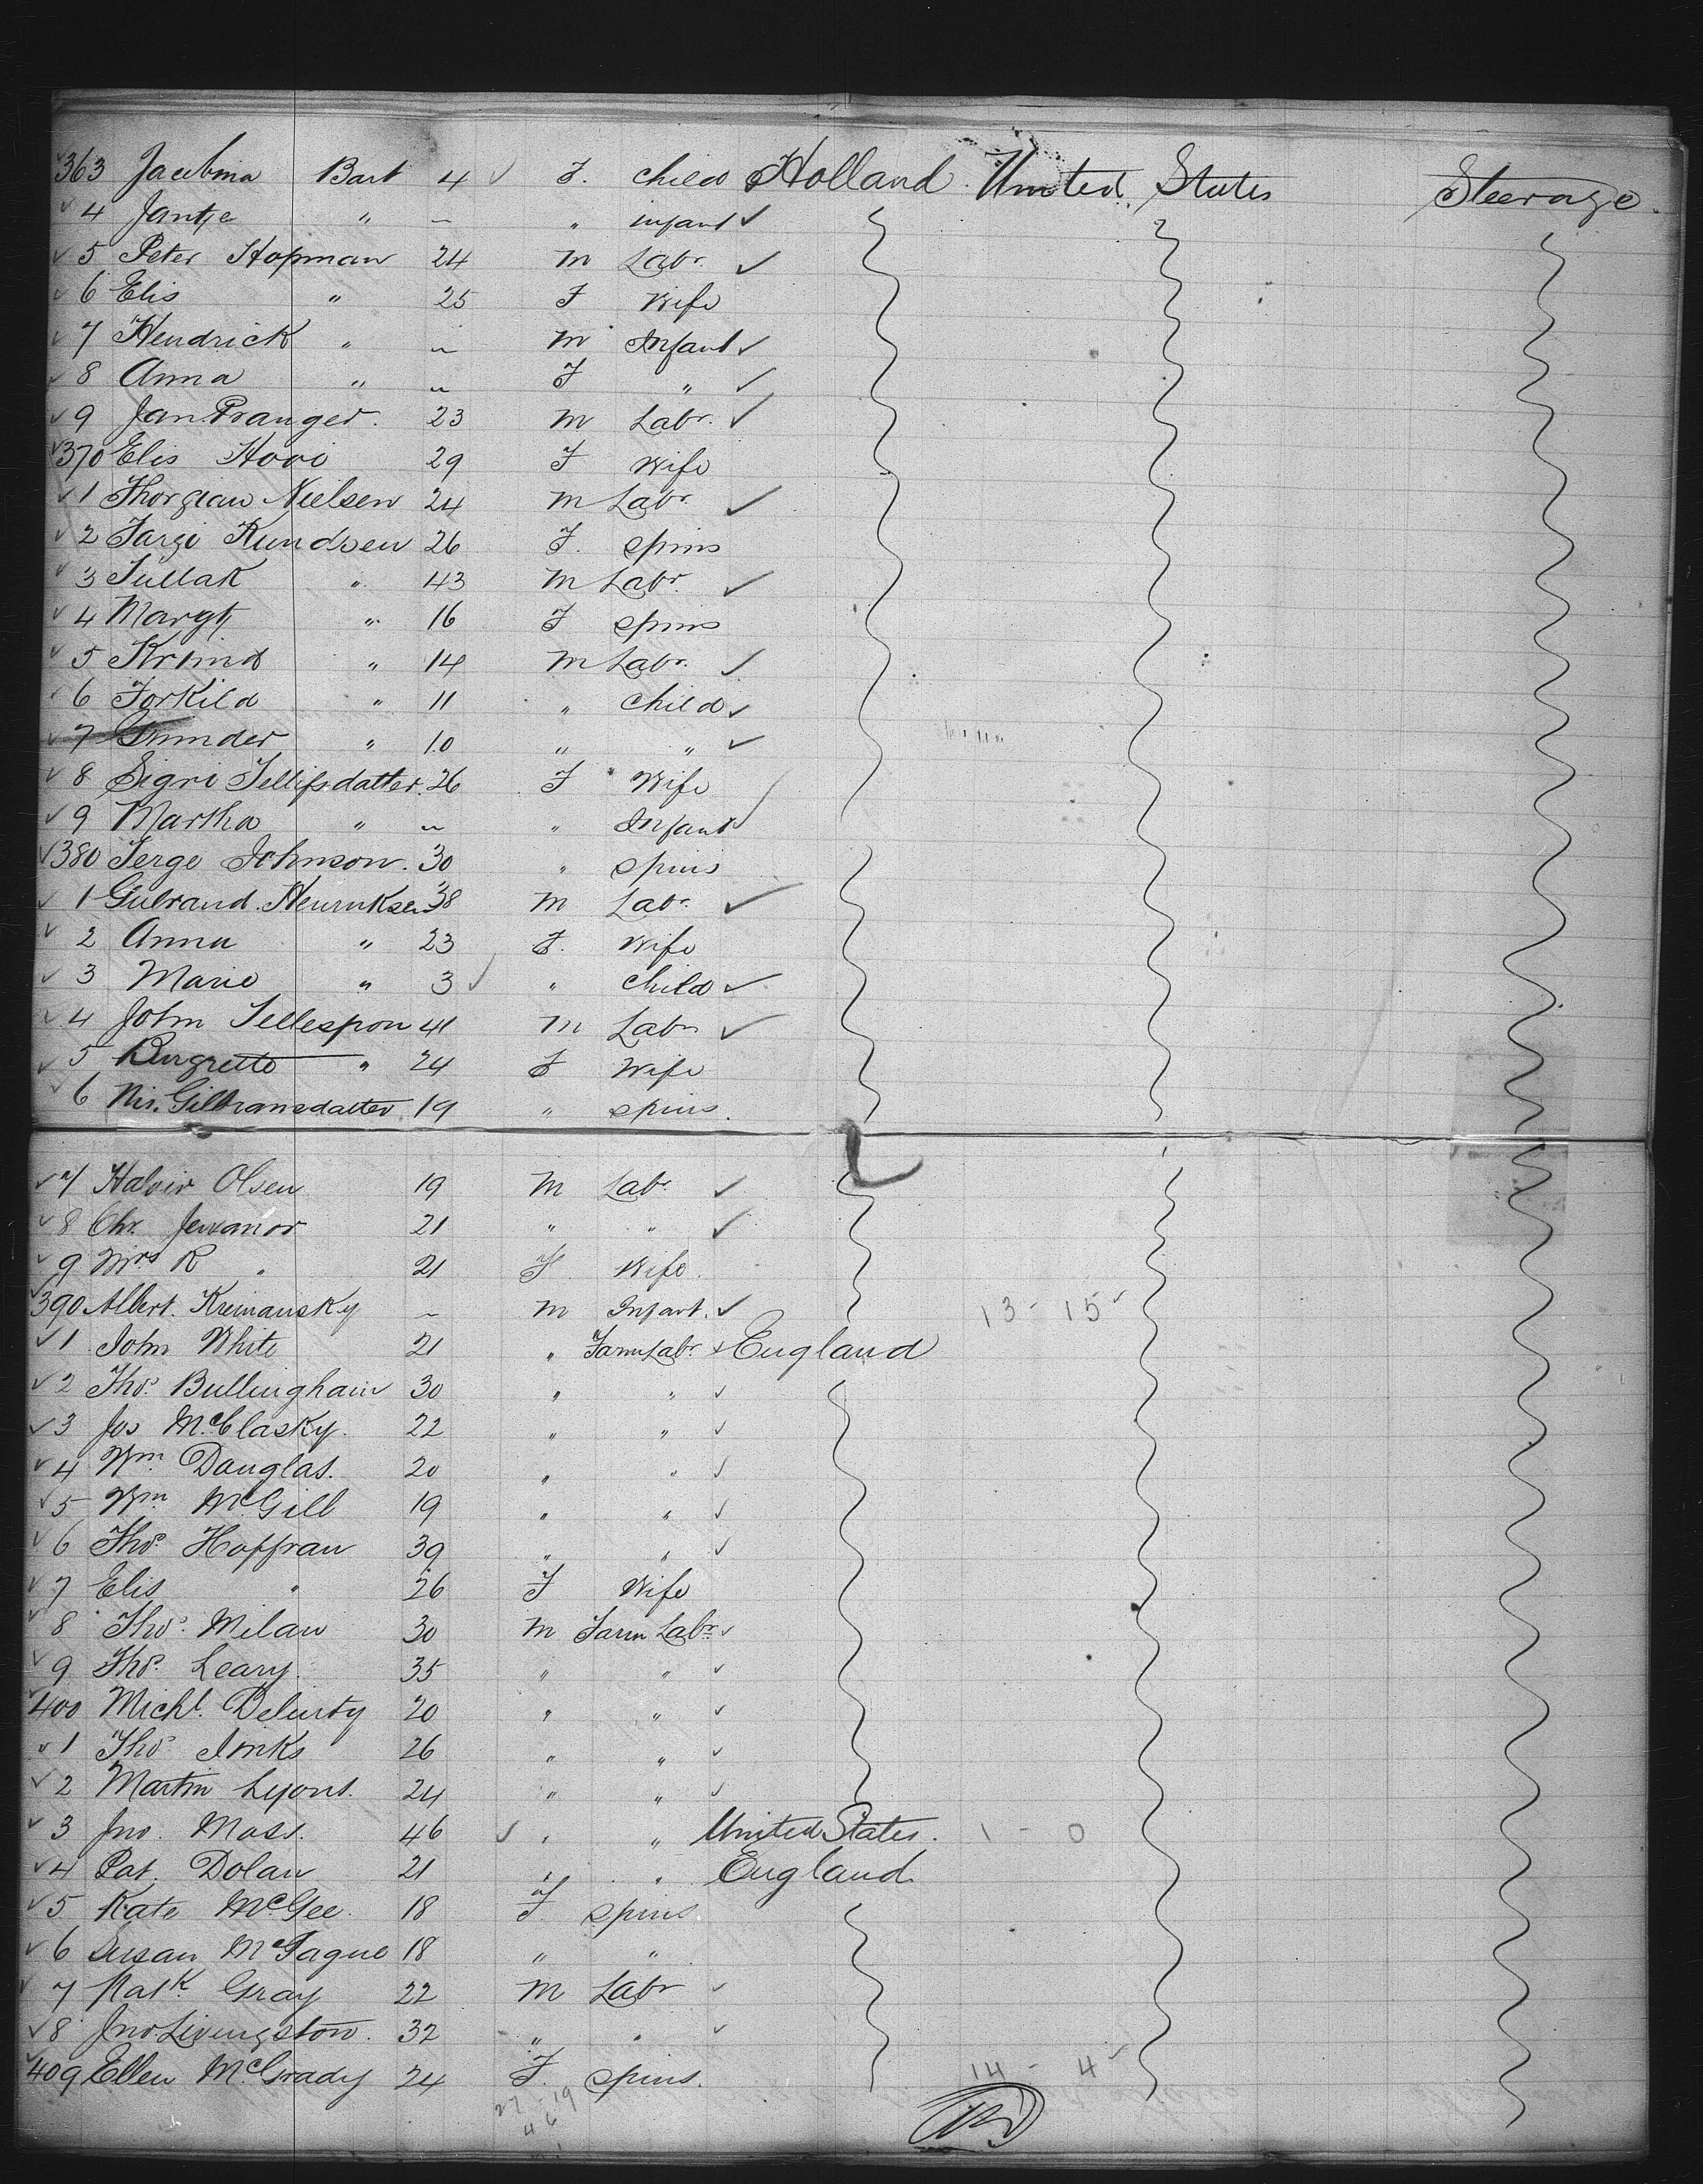 363 Jacobina Bart 4 F. child Holland United States Steerage.
4 Jantje " ~ " infant
5 Peter Hopman 24 m Labr.
6 Elis " 25 F Wife
7 Hendrick " ~ m Infant
8 Anna " ~ F "
9 Jan Pranger. 23 m Labr.
370 Elis Hooi 29 F Wife
1 Thorgian Nielsen 24 m Labr.
2 Targe Knudsen 26 F. spins
3 Tullak " 43 m Labr.
4 Margt " 16 F spins
5 " 14 m Labr.
6 Torkild " 11 " child
7 Gunder " 10 " "
8 Sigri Tellifsdatter. 26 F Wife
9 Martha " ~ " Infant
380 Terge Johnson. 30 " spins
1 Gulrand Henriksen 38 m Labr.
2 Anna " 23 F. Wife
3 Marie " 3 " child
4 John Tellespon 41 m Labr
5 " 24 F Wife
6 Nis. 19 " spins.
7 Halvir Olsen 19 m Labr
8 Chr. 21 " "
9 Mrs R " 21 F Wife.
390 Albert. Kreimansky ~ m Infant. 13 - 15
1 John White 21 " Farm Labr. England
2 Thos. Bullingham 30 " "
3 Jos McClasky. 22 " "
4 Wm. Douglas. 20 " "
5 Wm McGill 19 " "
6 Thos. Hoffran 39 " "
7 Elis " 26 F Wife
8 Thos. Milan 30 m Farm Labr
9 Thos. Leary. 35 " "
400 Michl. Delurty 20 " "
1 Thos. Jinks 26 " "
2 Martin Lyons. 24 " "
3 Jno. Moss. 46 " " United States. 1 - 0
4 Pat. Dolan 21 " " England
5 Kate McGee. 18 F. spins.
6 Susan McTague 18 " "
7 Patk. Gray 22 m Labr
8 Jno. Livingston. 32 " "
409 Ellen McGrady 24 F. spins. 14 - 4
27 - 19
46